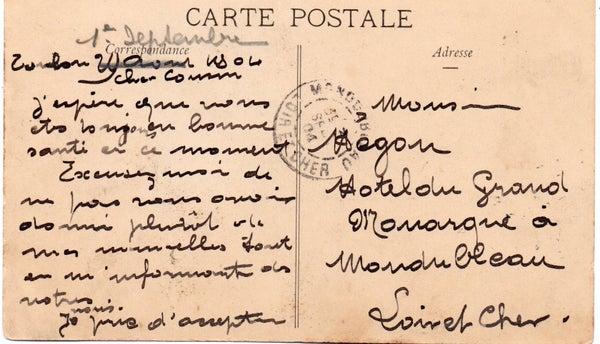 CARTE POSTALE
1er Septembre
Correspondance
Adresse
Toulon Aout 1904
cher Cousin
j'espère que vous
etes toujours en bonne
santé en ce moment
Excusez moi de
ne pas vous avoir
donné plutôt de
mes nouvelles tout
en m'informant des
votres
vous
Je prie d'accepter
Monsieur
Hegon
Hotel du Grand
Monarque à
Mondubleau
Loir et Cher.
MONDOUBLEAU
LOIR ET CHER
SEPT
04